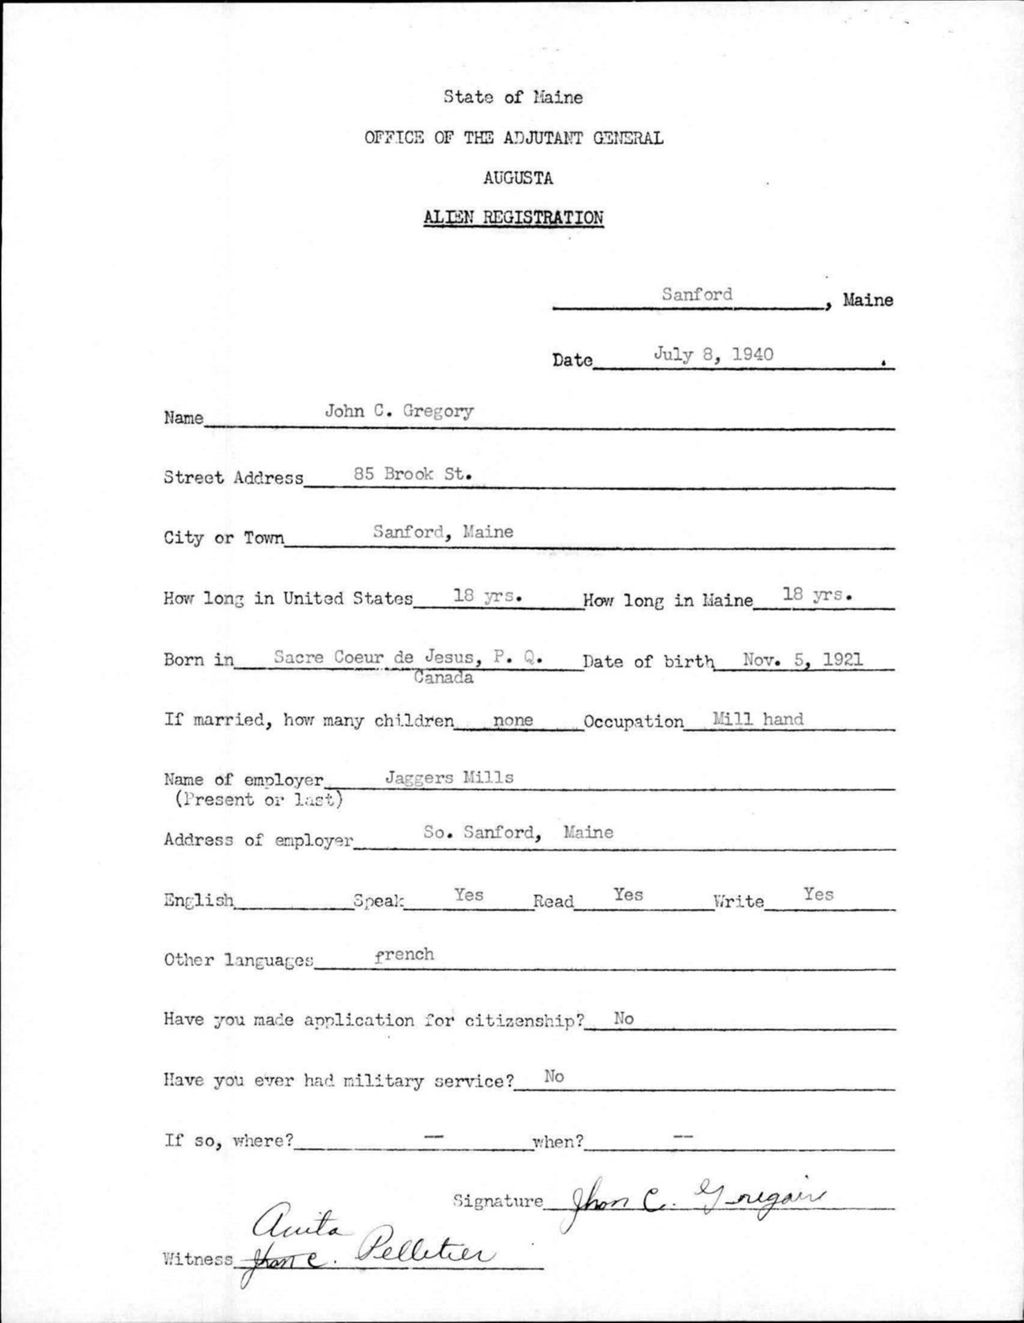 State of Maine
OFFICE OF THE ADJUTANT GENERAL
AUGUSTA
ALIEN REGISTRATION
Sanford, Maine
Date July 8, 1940.
Name John C. Gregory
Street Address 85 Brook St.
City or Town Sanford, Maine
How long in United States 18 yrs. How long in Maine 18 yrs.
Born in Sacre Coeur de Jesus, P. Q. Date of birth Nov. 5, 1921
Canada
If married, how many children none Occupation Mill hand
Name of employer Jaggers Mills
(Present or last)
Address of employer So. Sanford, Maine
English Speak Yes Read Yes Write Yes
Other languages french
Have you made application for citizenship? No
Have you ever had military service? No
If so, where? -- when? --
Signature Jhon C. Gregair
Anita
Witness Jhon C. Pelletier